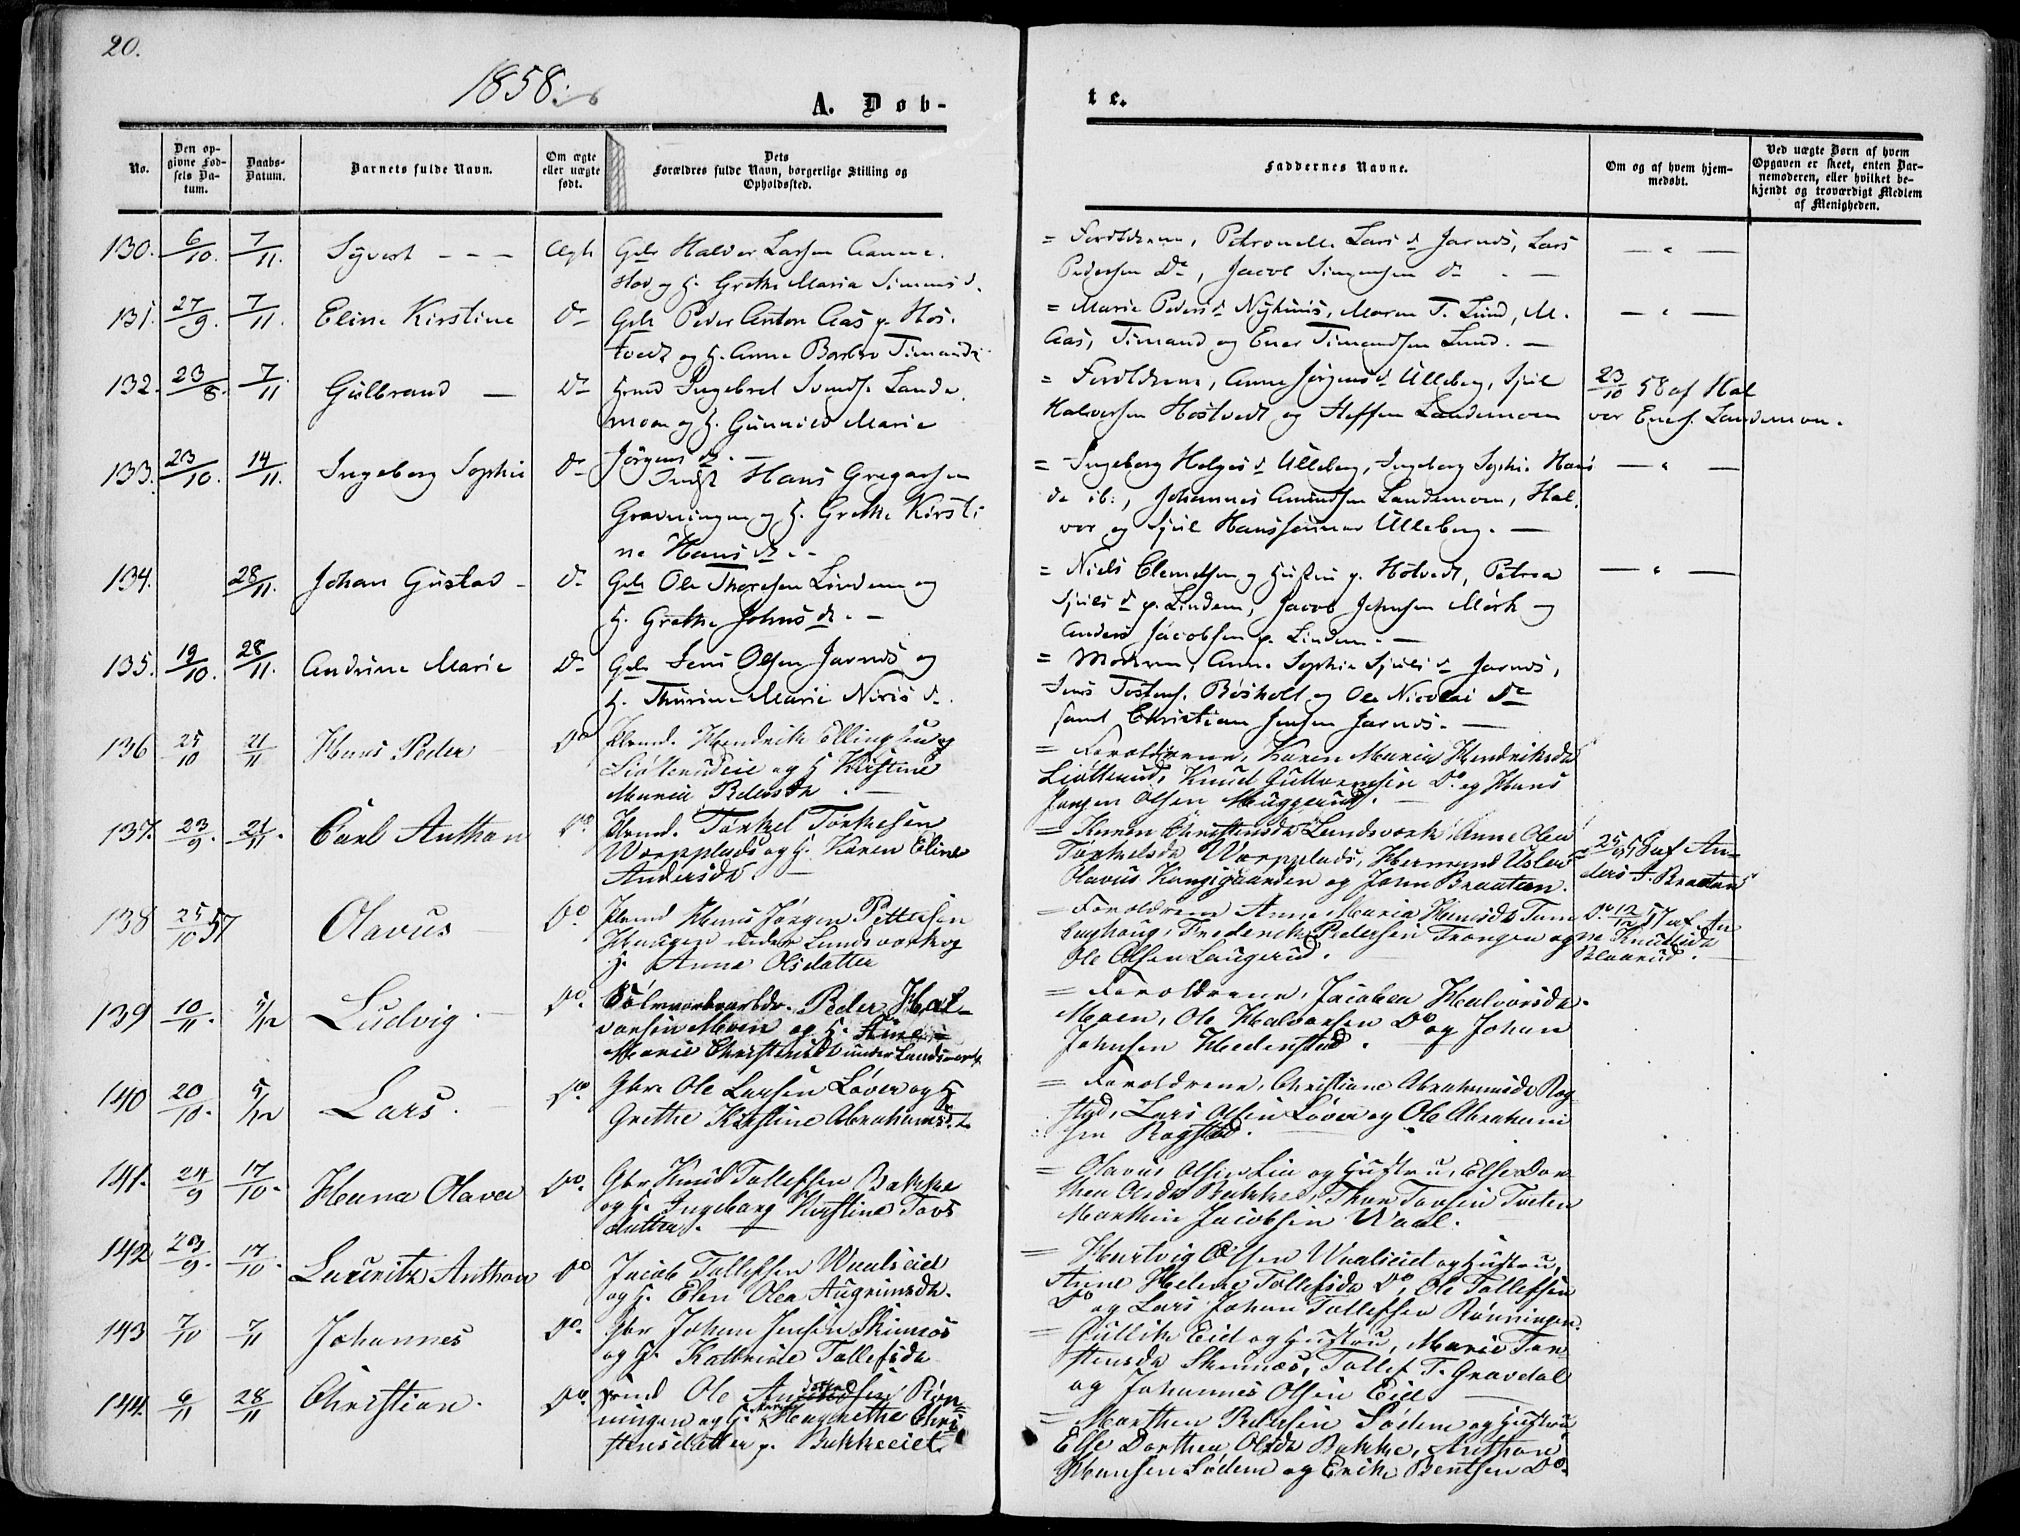 20.
1858.
A. Døb-
te.
No.
Den op-
givne Fød-
sels Da-
tum.
Daabs-
Datum.
Barnets fulde Navn.
Om ægte
eller uægte
født.
Dets
Forældres fulde Navn, borgerlige Stilling og
Opholdssted.
Faddernes Navne.
Om og af hvem hjem-
medøbt.
Ved uægte Børn af hvem
Opgaven er skeet, enten Bar-
nemoderen, eller hvilket be-
kjendt og troværdigt Medlem
af Menigheden.
130. 6/10. 7/11. Syvert - - - Ægte Gbr Halvor Larsen
og H. Grethe Maria Simens d.
= Forældrene, Petronelle Lars d Jarnæs, Lars
Pedersen Do, Jacob Simensen Do
131. 27/9. 7/11. Eline Kirstine Do Gbr Peder Anton Aas p. Hos-
tvedt og H. Anne Barbro Timands
= Marie Peders d Nyhuus, Maren T. Lund, M.
Aas, Timand og Ener Timandsen Lund. -
132. 23/8. 7/11 Gulbrand - Do Hmd Ingebret Svends. Lande-
moen og H. Gunnild Marie
Jørgens d. -
= Forældrene, Anne Jørgens d Ulleberg, Sjul
Halvorsen Hostvedt og Steffen Landemoen
23/10 58 af Hal
vor Eners. Landemoen.
133. 23/10. 14/11. Ingeborg Sophie Do Inds Hans Gregersen
Gravningen og H. Grethe Kirsti-
ne Hans d. -
= Ingeborg Helges d Ulleberg, Ingeborg Sophie Hans
d ib:, Johannes Amundsen Landemoen, Hal-
vor og Sjul Hanssønner Ulleberg. -
134. 28/11. Johan Gustav - Do Gbr Ole Thoresen Lindem og
H. Grethe Johns d. -
= Niels Clemetsen og Hustru p. Hotvedt, Petrea
Sjuls d p. Lindem, Jacob Johnsen Mørk og
Anders Jacobsen p. Lindem. -
135. 19/10. 28/11. Andrine Marie Do Gbr Jens Olsen Jarnæs og
H. Thurine Marie Niels d.
= Moderen, Anne Sophie Sjuls d Jarnæs,
Jens Tostens. Bøsholt og Ole Nicolai Do
samt Christian Jensen Jarnæs. -
136 25/10 21/11 Hans Peder Do Huusmd. Hendrik Ellingsen
og H Kirstine
Maria Pedersdr. -
= Forældrene, Karen Maria Hendriksdr
Knud Guttormsen Do og Hans
Jørgen Olsen Muggerud. -
137. 23/9. 21/11. Carl Anthon Do Huusmd. Torkel Torkelsen
Værpplads og H. Karen Eline
Andersdr.
= Karen Christensdr Landsværk, Anne Olea
Torkelsdr Værpplads, Hermand
Olavus Kongsgaarden og John Braaten.
25/9 58 af An-
ders J. Braaten
138 25/10 57 Olavus - Do Huusmd Hans Jørgen Pettersen
Haugen under Landsværk og
H. Anne Olsdatter
= Forældrene Anne Maria Hansdr
Frederik Pedersen Trangen og
Ole Olsen Laugerud.
Do 12/12 57 af An-
ne Knudsdr
Blaarud.
139 10/11. 5/12 Ludvig. - Do. Peder Hal-
vorsen Moen og H. Anne
Marie Christensdr under Landsværk
= Forældrene, Jacobea Halvorsdr.
Moen, Ole Halvorsen Do og Johan
Johnsen Hedenstad.
140 20/10. 5/12 Lars. - Do. Gbr. Ole Larsen Løver og H
Grethe Kirstine Abrahamsdr
= Forældrene, Christiane Abrahamsdr Rog-
stad, Lars Olsen Løver og Ole Abraham
sen Rogstad.
141. 24/9 17/10. Hanna Olava Do. Gbr Knud Tollefsen Bakke
og H. Ingeborg Kirstine Tovs
datter. -
= Olavus Olsen Lia og Hustru, Else Dor
thea Olsdr Bakke, Thor Tovsen Tveten
Marthin Jacobsen Waal.
142 23/9. 17/10. Lauritz Anthon Do Jacob Tollefsen Waalseiet
og H. Elen Olea Augrimsdr.
= Hartvig Olsen Waalseiet og Hustru,
Anne Helene Tollefsdr Do, Ole Tollefsen
Do og Lars Johan Tollefsen Rønningen.
143 7/10 7/11 Johannes Do. Gbr Johan Jensen Skimnæs
og H. Kathrine Tollefsdr
= Gullik Eid og Hustru, Marie Tor
stensdr Skimnæs, Tollef T. Gravdal
og Johannes Olsen Eid. -
144. 6/11 28/11 Christian. Do. Huusmd Ole Røn-
ningen og H. Magrethe Chri-
stensdatter p. Bakkeeiet.
= Marthin Pedersen Sødem og Hustru
Else Dorthea Olsdr Bakke, Anthon
Hansen Sødem og Erik Bentsen Do.